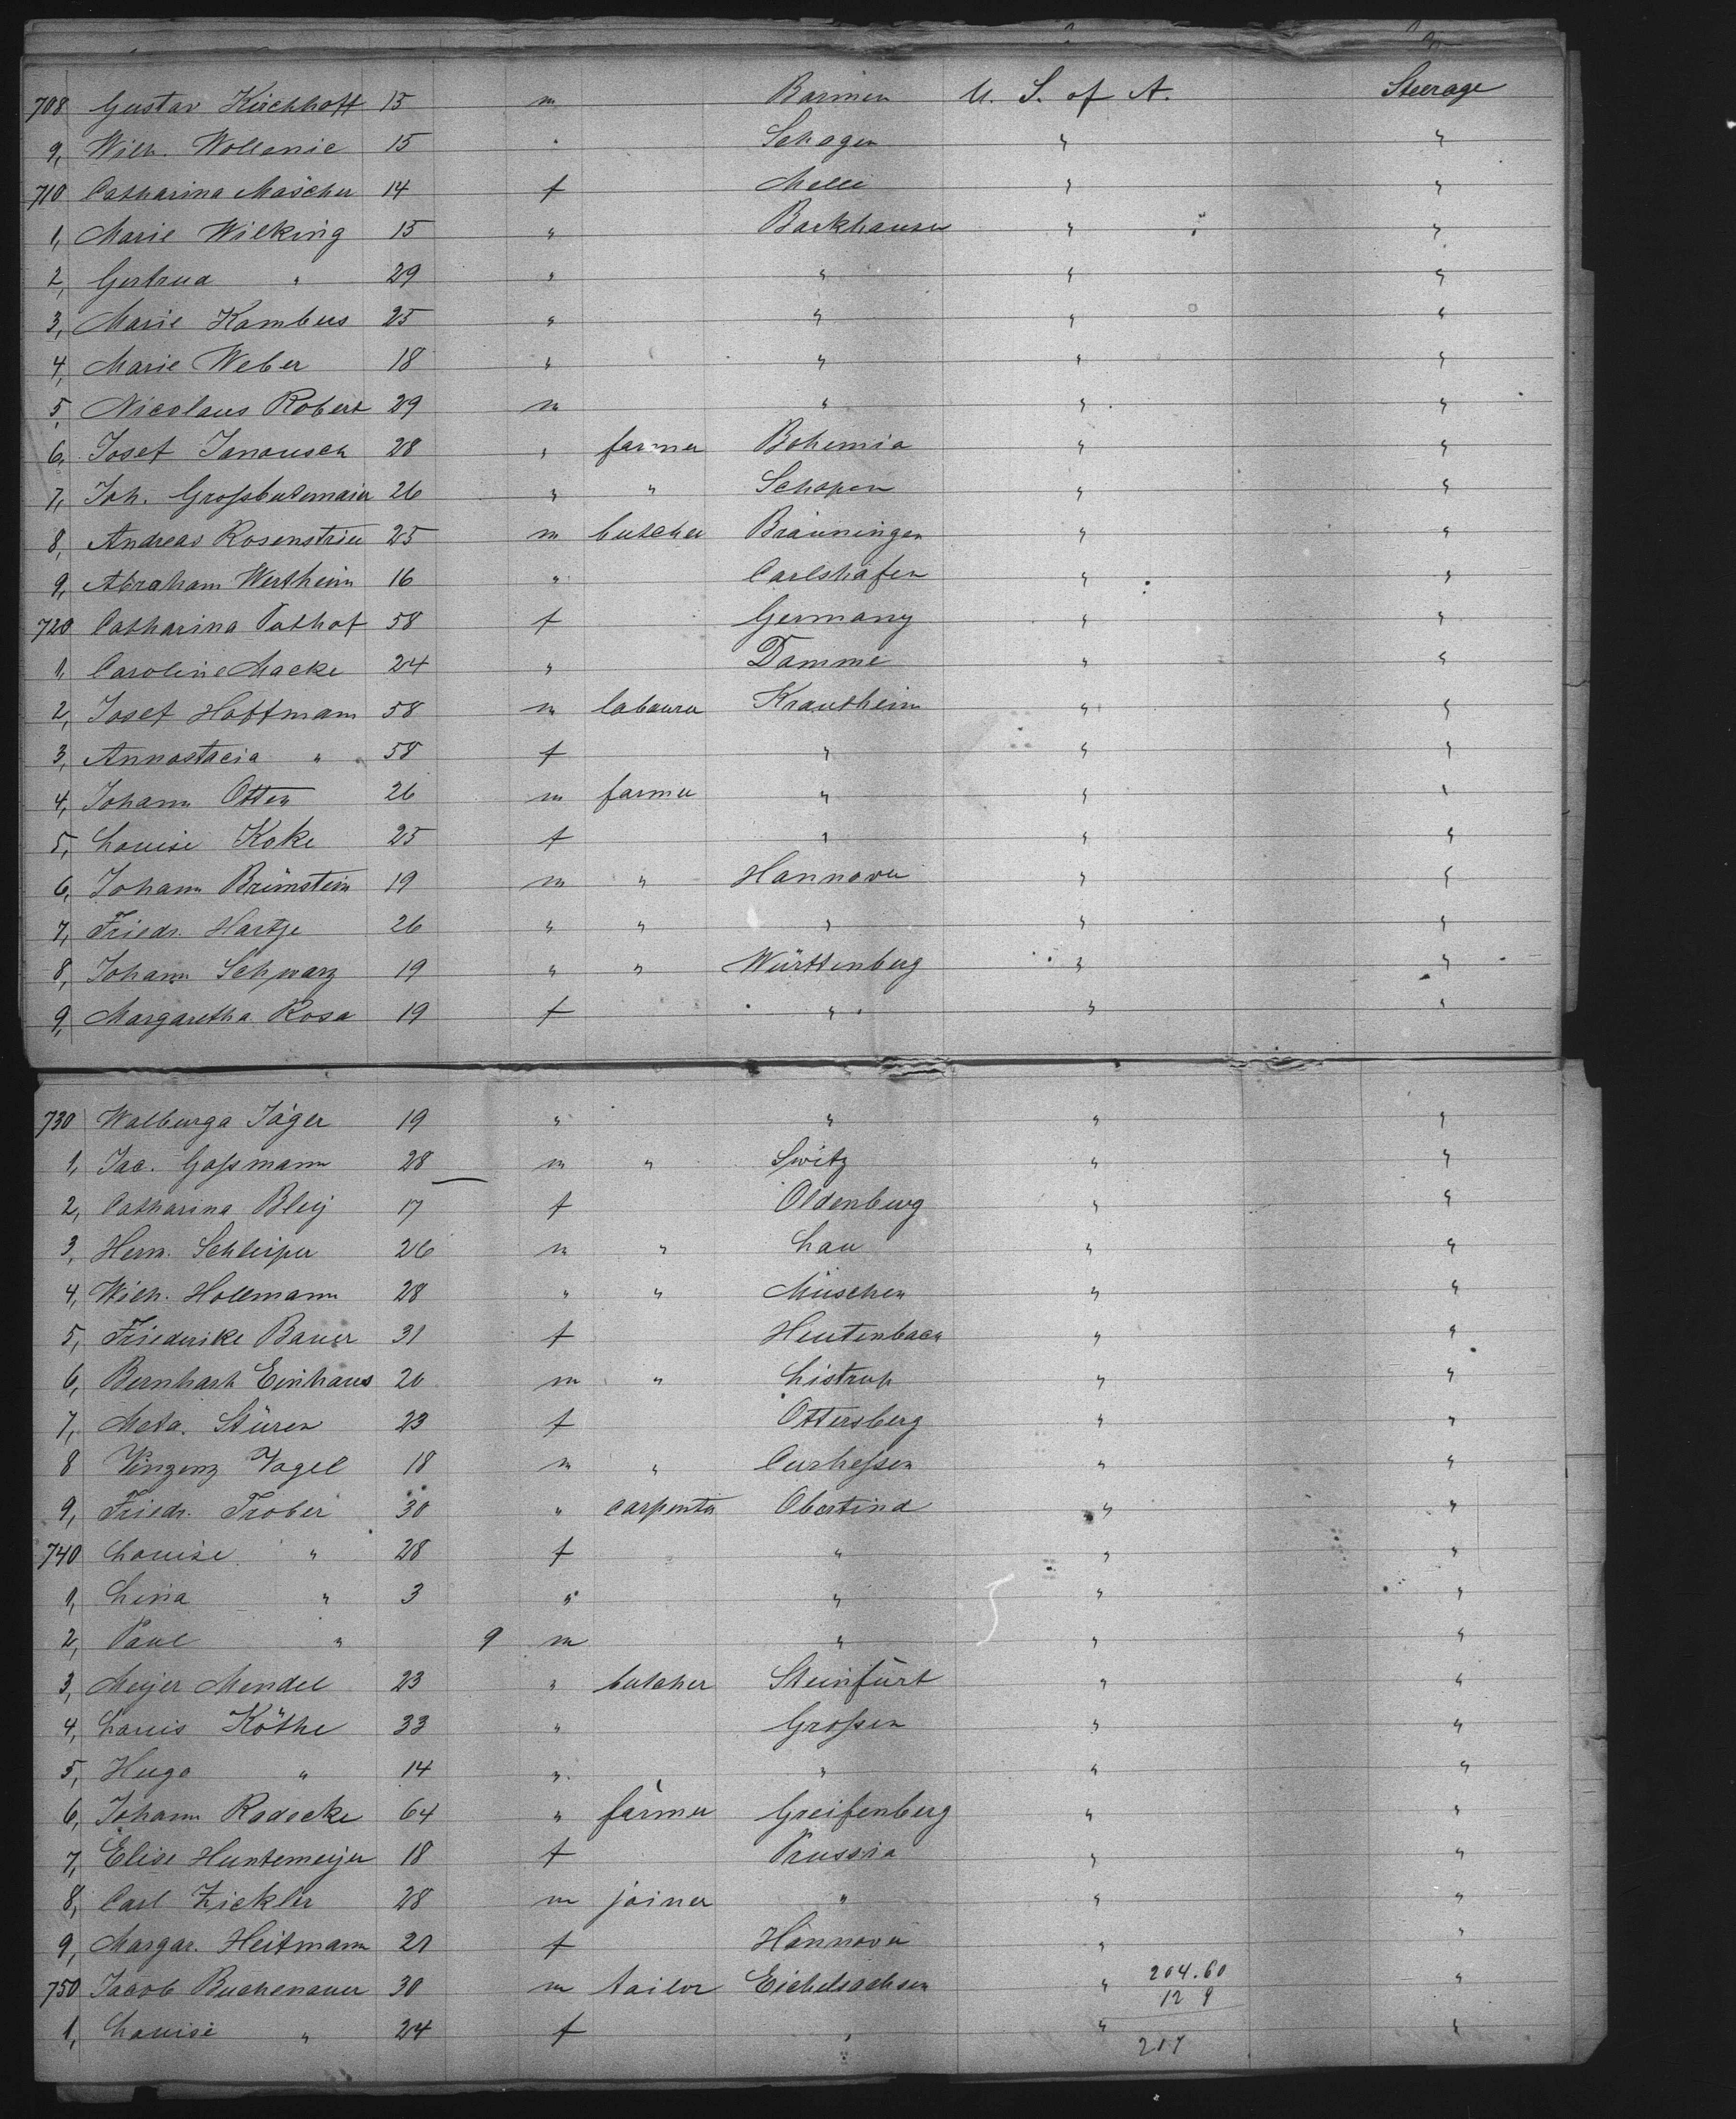 708 Gustav Kirchhoff 15 m Barmen U. S. of A. Steerage
9, Wilh. Wollenie 15 " Schagen " "
710 Catharina Mascher 14 f Melle " "
1, Marie Wilking 15 " Barkhausen " "
2, Gertrud " 29 " " " "
3, Marie Kambers 25 " " " "
4, Marie Weber 18 " " " "
5, Nicolaus Robert 29 m " " "
6, Josef Janousch 28 " farmer Bohemia " "
7, Joh. Großbutemaier 26 " " Schapen " "
8, Andreas Rosenstrier 25 m butcher Bräuningen " "
9, Abraham Wertheim 16 " Carlshafen " "
720 Catharina Pathof 58 f Germany " "
1, Caroline Macke 24 " Damme " "
2, Josef Hoffmann 58 m labourer Krautheim " "
3, Annastacia " 58 f " " "
4, Johann Otten 26 m farmer " " "
5, Louise Koke 25 f " " "
6, Johann Brümstein 19 m " Hannover " "
7, Friedr. Hartje 26 " " " " "
8, Johann Schwarz 19 " " Württenberg " "
9, Margaretha Rosa 19 f " " "
730 Walburga Jäger 19 " " " "
1, Jac. Gaßmann 28 m " Switz " "
2, Catharina Bley 17 f Oldenburg " "
3, Herm. Schleiper 26 m " Lau " "
4, Wilh. Hollmann 28 " " Müschen " "
5, Friederike Bauer 31 f Heutenbach " "
6, Bernhard Einhaus 20 m " Listrup " "
7, Meta Stüren 23 f Ottersberg " "
8 Vinzenz Vogel 18 m " Curhessen " "
9, Friedr. Trober 30 " carpenter Obertind " "
740 Louise " 28 f " " "
1, Lina " 3 " " " "
2, Paul " 9 m " " "
3, Meyer Mendel 23 " butcher Steinfurt " "
4, Louis Köthe 33 " Großen " "
5, Hugo " 14 " " " "
6, Johann Radecke 64 " farmer Greifenberg " "
7, Elise Huntemeyer 18 f Prussia " "
8, Carl Zickler 28 m joiner " " "
9, Margar. Heitmann 21 f Hannover " "
750 Jacob Buchenauer 30 m tailor Eichelsachsen " 204.60 "
12 9
1, Louise " 24 f " " "
217